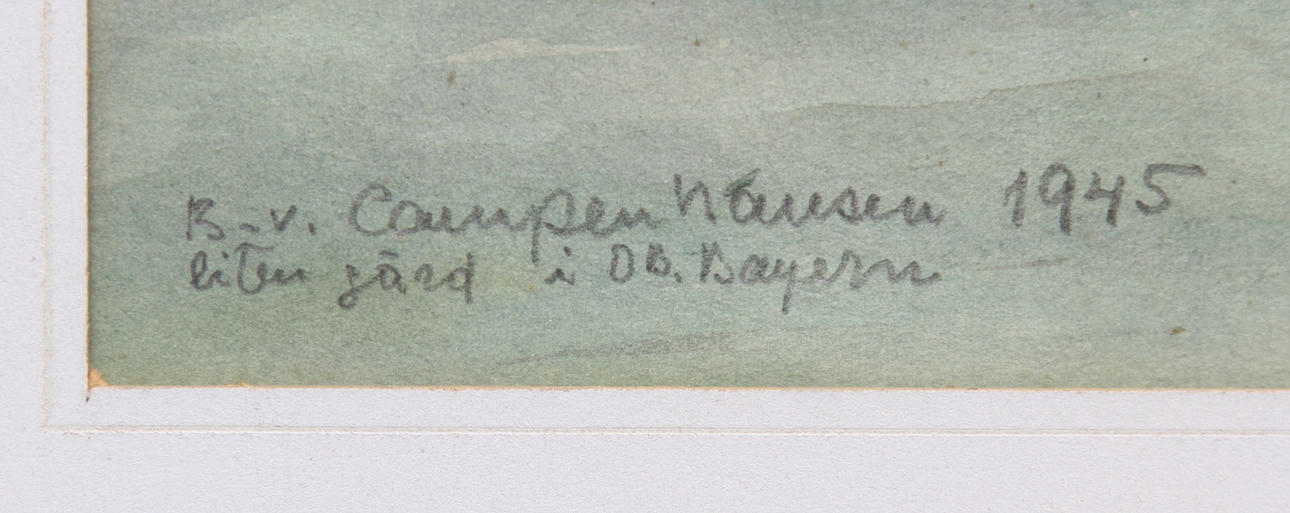 B.v. Campenhausen 1945
liten gård i OB. Bayern